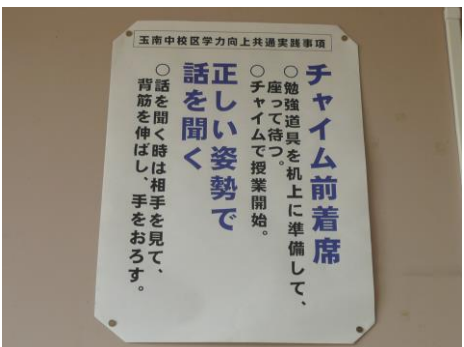 玉南中校区学力向上共通実践事項
チャイム前着席
○勉強道具を机上に準備して、
座って待つ。
○チャイムで授業開始。
正しい姿勢で
話を聞く
○話を聞く時は相手を見て、
背筋を伸ばし、手をおろす。